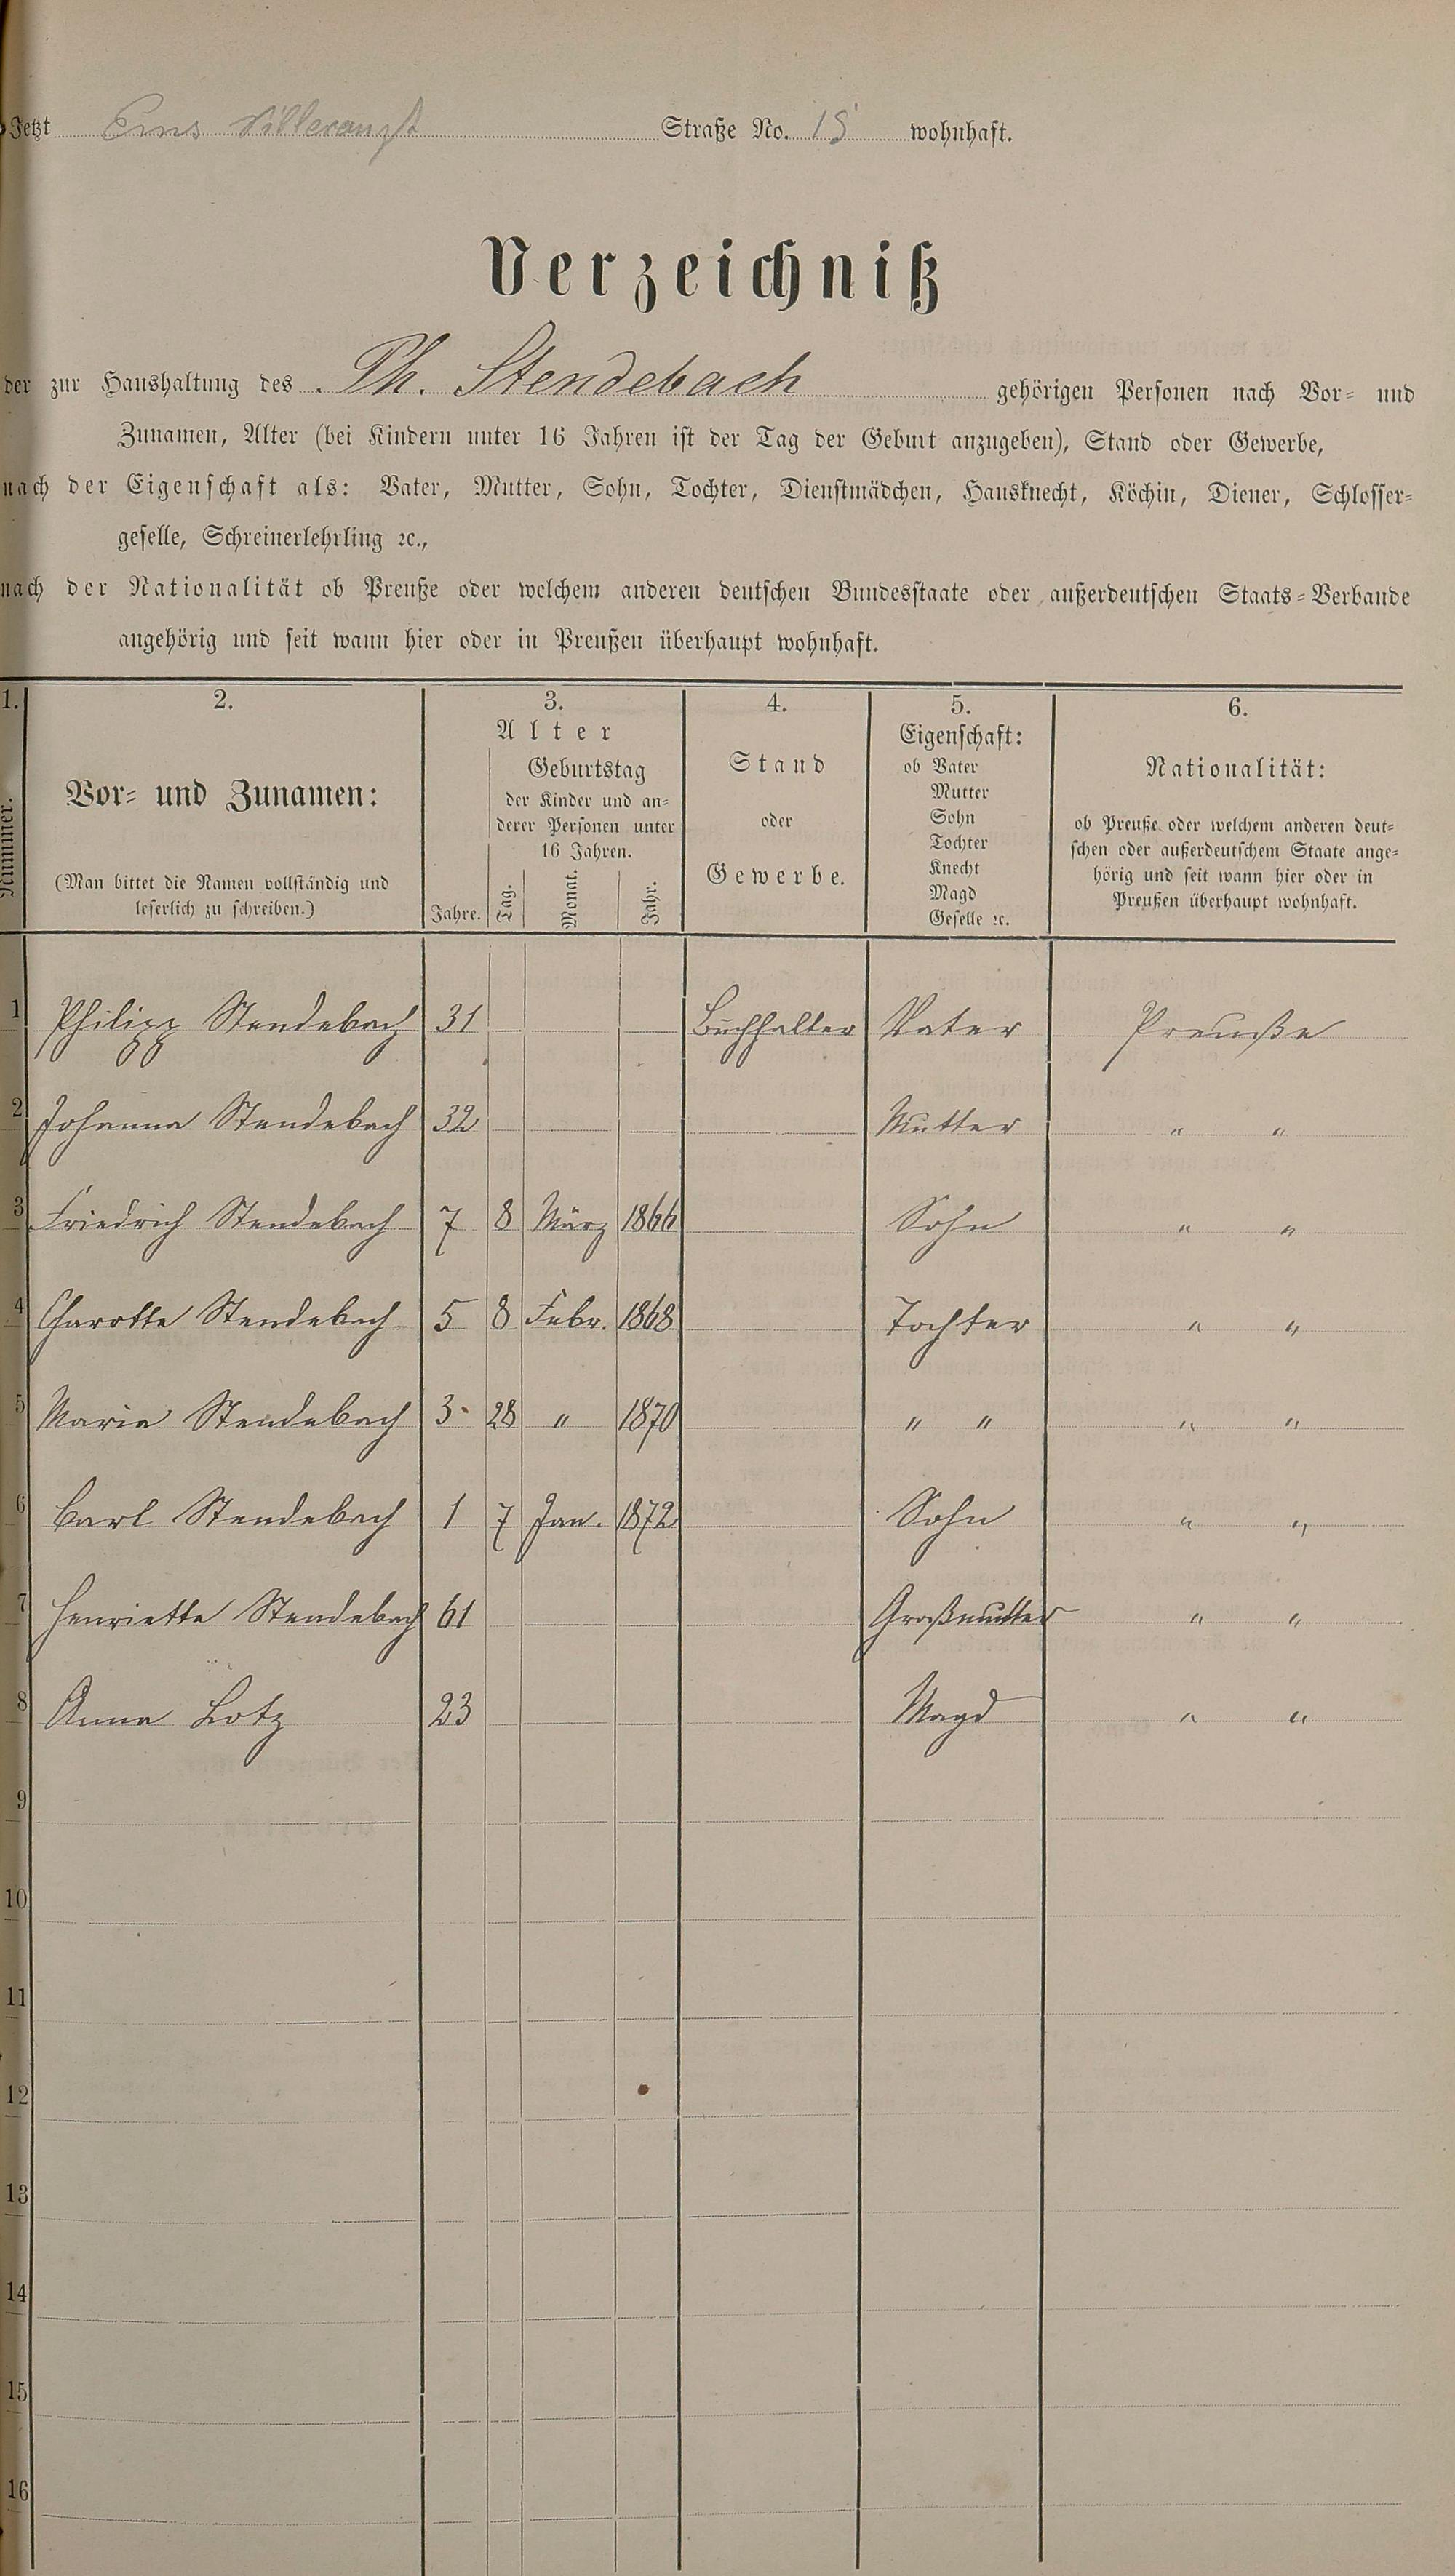 Jetzt Ems Straße No. wohnhaft.
Verzeichniß
der zur Haushaltung des Ph. Stendebach gehörigen Personen nach Vor- und
Zunamen, Alter (bei Kindern unter 16 Jahren ist der Tag der Geburt anzugeben), Stand oder Gewerbe,
nach der Eigenschaft als: Vater, Mutter, Sohn, Tochter, Dienstmädchen, Hausknecht, Köchin, Diener, Schlosser-
geselle, Schreinerlehrling ꝛc.,
nach der Nationalität ob Preuße oder welchem anderen deutschen Bundesstaate oder außerdeutschen Staats-Verbande
angehörig und seit wann hier oder in Preußen überhaupt wohnhaft.
1. 2. 3. 4. 5. 6.
Nummer.
Vor- und Zunamen:
(Man bittet die Namen vollständig und
leserlich zu schreiben.)
Alter
Geburtstag
der Kinder und an-
derer Personen unter
16 Jahren.
Jahre. Tag. Monat. Jahr.
Stand
oder
Gewerbe.
Eigenschaft:
ob Vater
Mutter
Sohn
Tochter
Knecht
Magd
Geselle ꝛc.
Nationalität:
ob Preuße oder welchem anderen deut-
schen oder außerdeutschem Staate ange-
hörig und seit wann hier oder in
Preußen überhaupt wohnhaft.
1 Philipp Stendebach 31 Buchhalter Vater Preuße
2 Johanna Stendebach 32 Mutter " "
3 Friedrich Stendebach 7 8 März 1866 Sohn " "
4 Charotte Stendebach 5 8 Febr. 1868 Tochter " "
5 Maria Stendebach 3 28 " 1870 " " " "
6 Carl Stendebach 1 7 Jan. 1872 Sohn " "
7 Henriette Stendebach 61 Großmutter " "
8 Anna Lotz 23 Magd " "
9
10
11
12
13
14
15
16